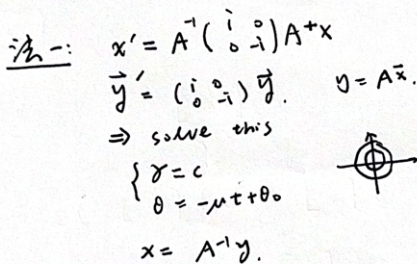 法一: x' = A⁻¹ (i 0 0 -i) A⁺ x
y⃗' = (i 0 0 -i) y⃗. y = A x⃗.
⇒ solve this
{ r = c
θ = -μt + θ₀
x = A⁻¹ y.